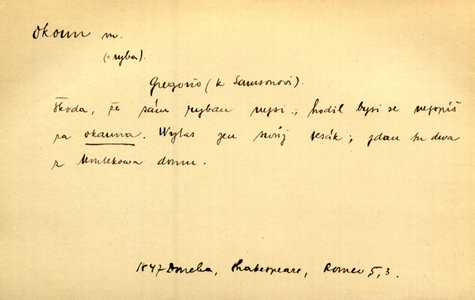 Okoun m.
(ryba).
Gregorio (k Samsonovi).
Škoda, že sám rybau nejsi; hodil bysi se nejspíš
za okauna. Wytas jen swůj tesák; gdau tu dwa
z Montekowa domu.
1847 Doucha, Shakespeare, Romeo 5, 3.